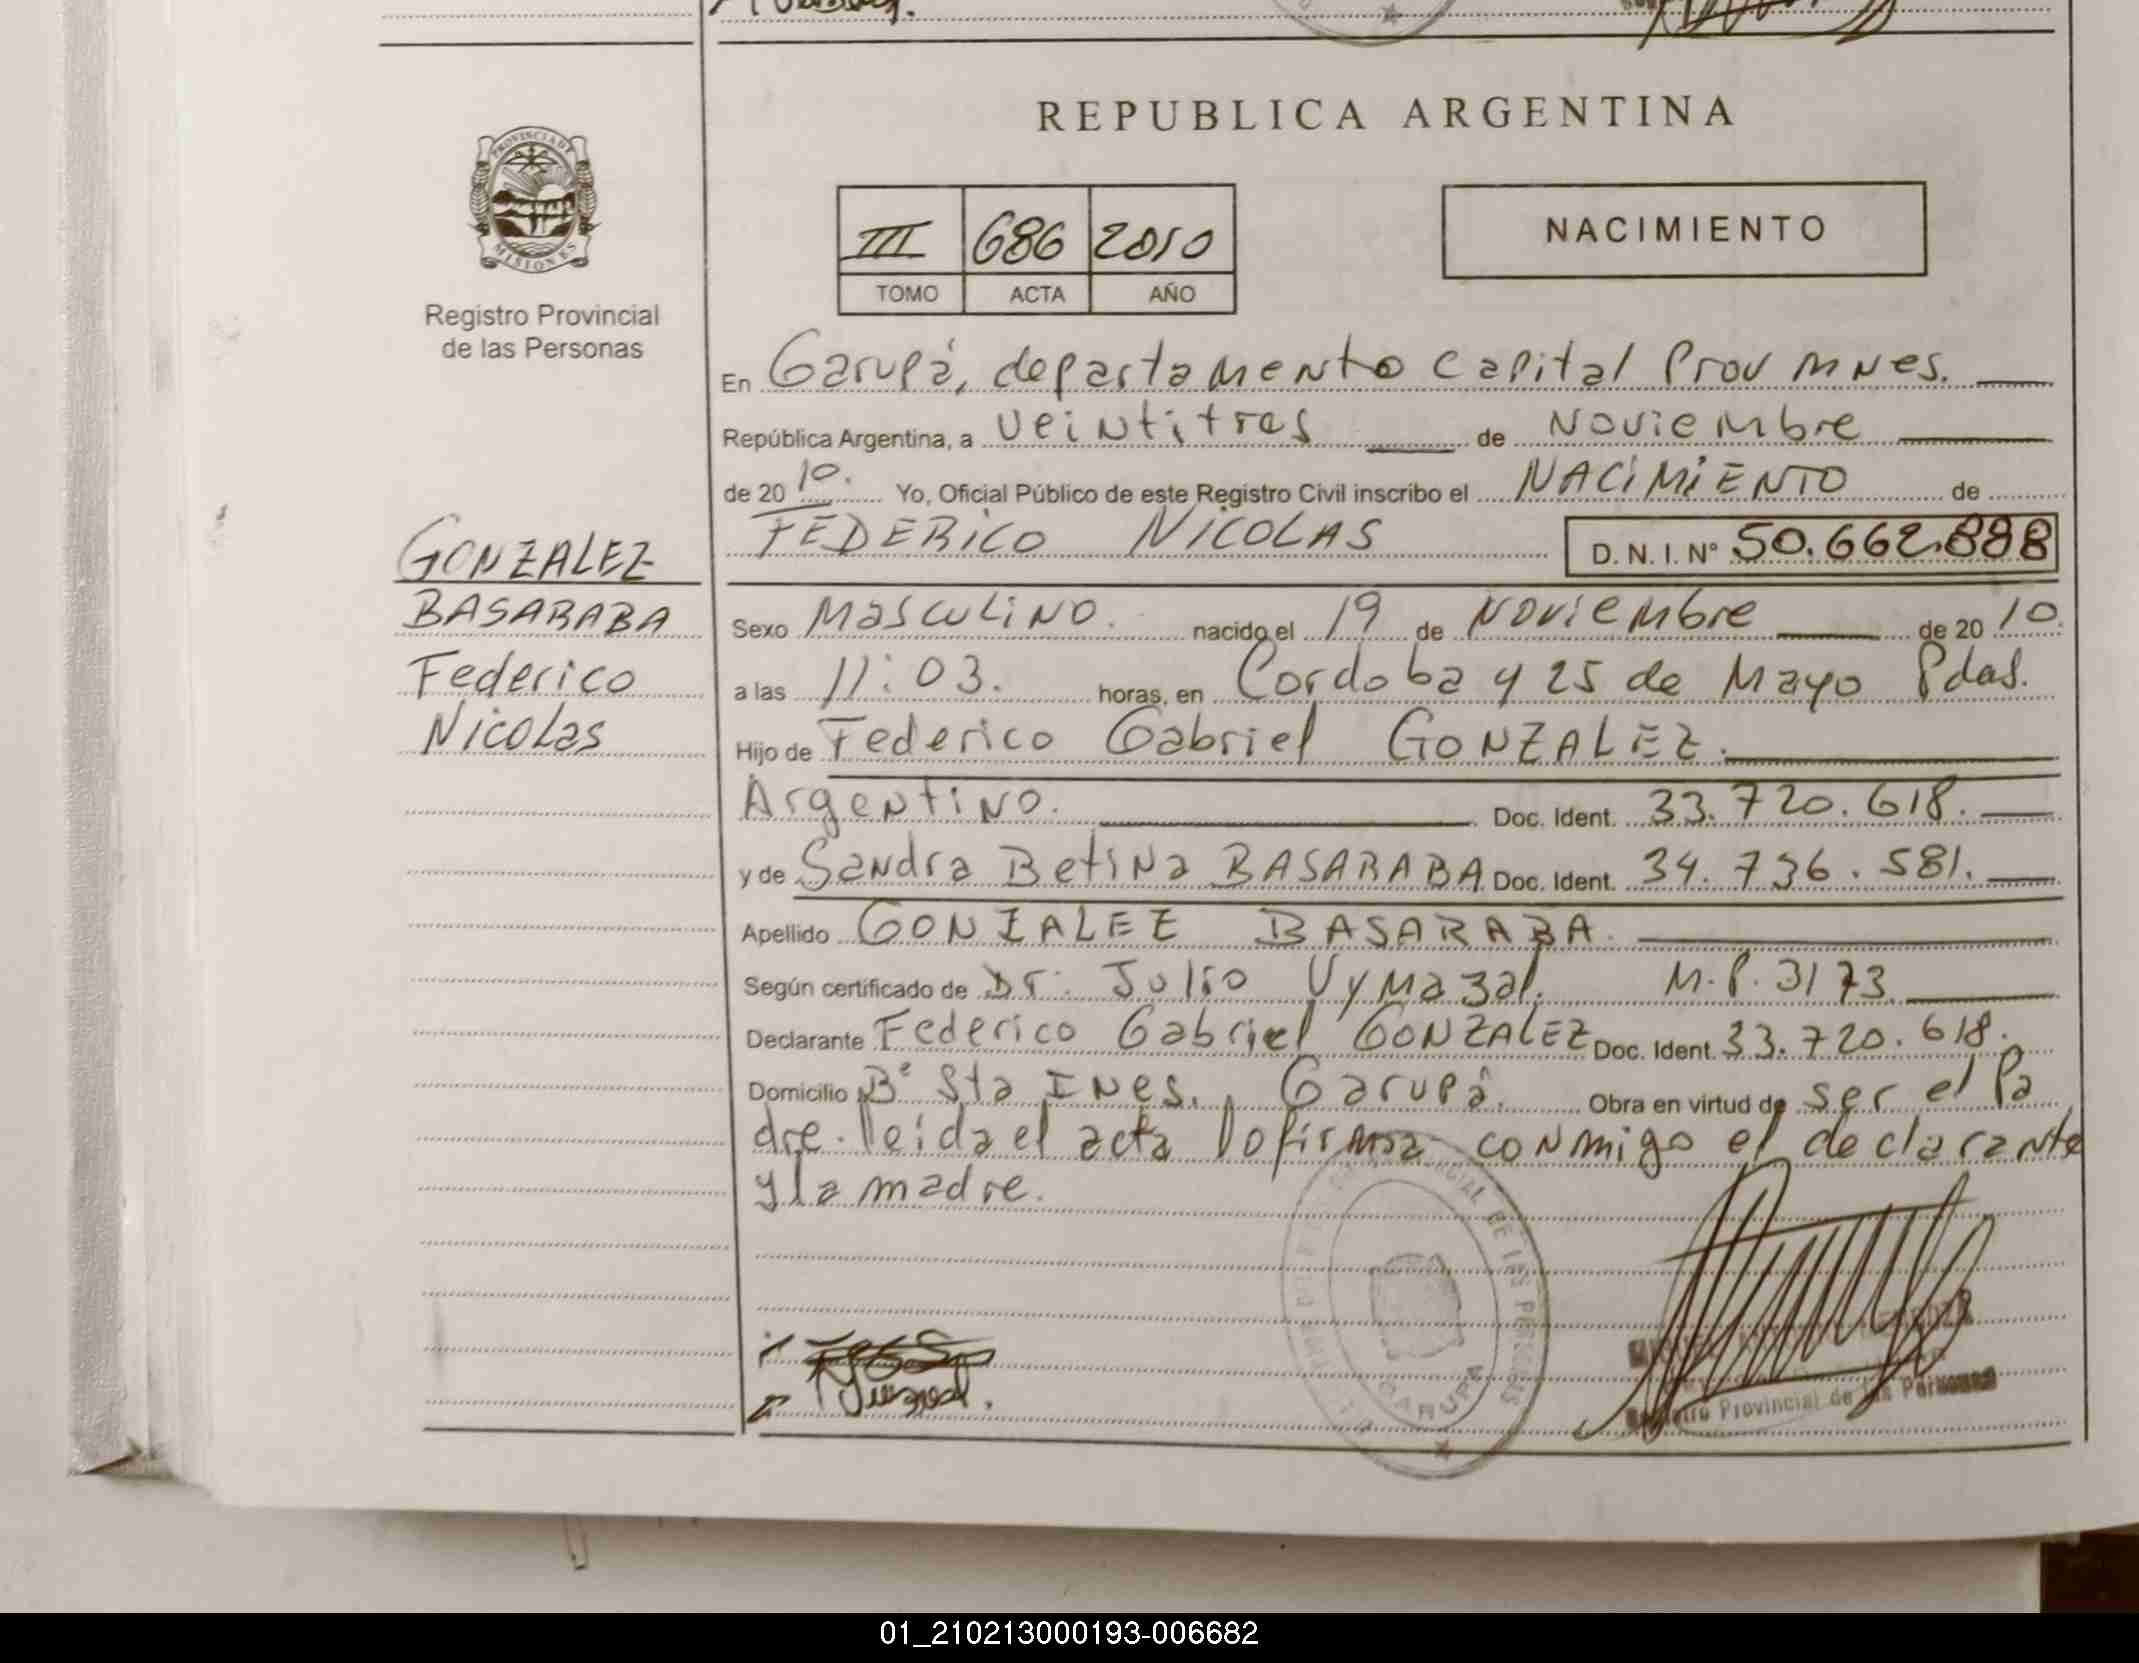 REPUBLICA ARGENTINA
PROVINCIA DE
MISIONES
Registro Provincial
de las Personas
III 686 2010
TOMO ACTA AÑO
NACIMIENTO
En Garupá, departamento Capital Prov Mnes.
República Argentina, a veintitres de Noviembre
de 20 10. Yo, Oficial Público de este Registro Civil inscribo el NACIMIENTO de
FEDERICO NICOLAS D. N. I. N° 50.662.888
GONZALEZ
BASARABA
Federico
Nicolas
Sexo Masculino. nacido el 19 de Noviembre de 20 10.
a las 11:03. horas, en Cordoba y 25 de Mayo Pdas.
Hijo de Federico Gabriel GONZALEZ.
Argentino. Doc. Ident. 33.720.618.
y de Sandra Betina BASARABA Doc. Ident. 34.736.581.
Apellido GONZALEZ BASARABA.
Según certificado de Dr. Julio Vymazal. M.P. 3173
Declarante Federico Gabriel GONZALEZ Doc. Ident. 33.720.618.
Domicilio B° Sta INES. Garupá. Obra en virtud de ser el Pa
dre. leida el acta lo firma conmigo el declarante
y la madre.
GARUPA
Registro Provincial de las Personas
01_210213000193-006682